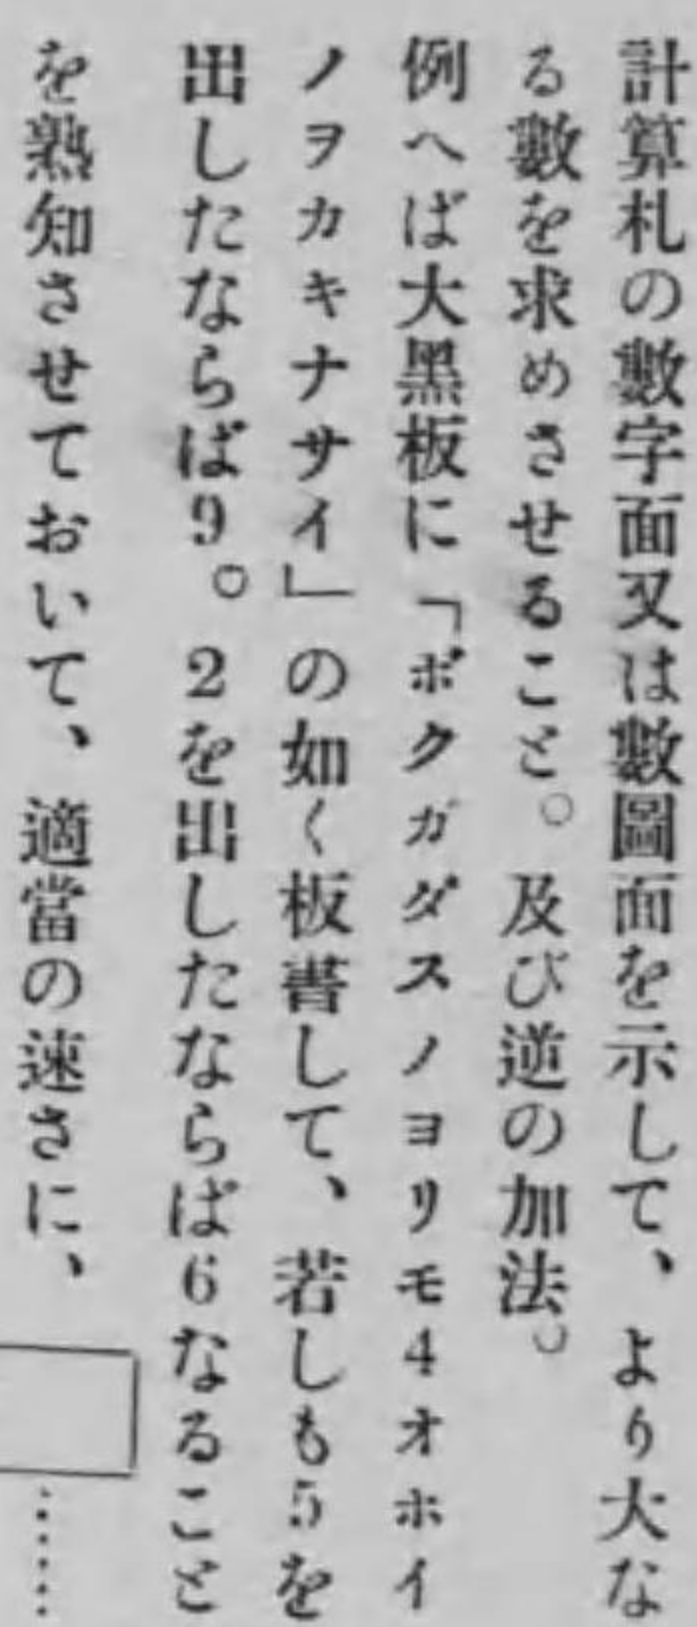 計算札の數字面又は數圖面を示して、より大な
る數を求めさせること。及び逆の加法。
例へば大黑板に「ボクガダスノヨリモ4オホイ
ノヲカキナサイ」の如く板書して、若しも5を
出したならば9。2を出したならば6なること
を熟知させておいて、適當の速さに、……